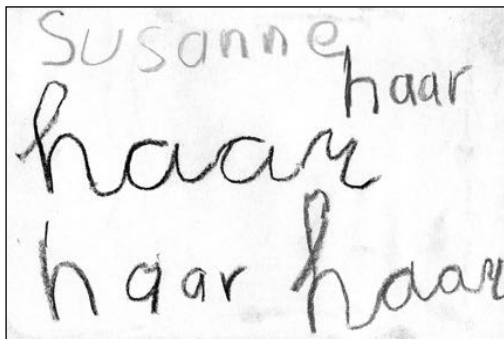 Susanne
haar
haar
haar haar